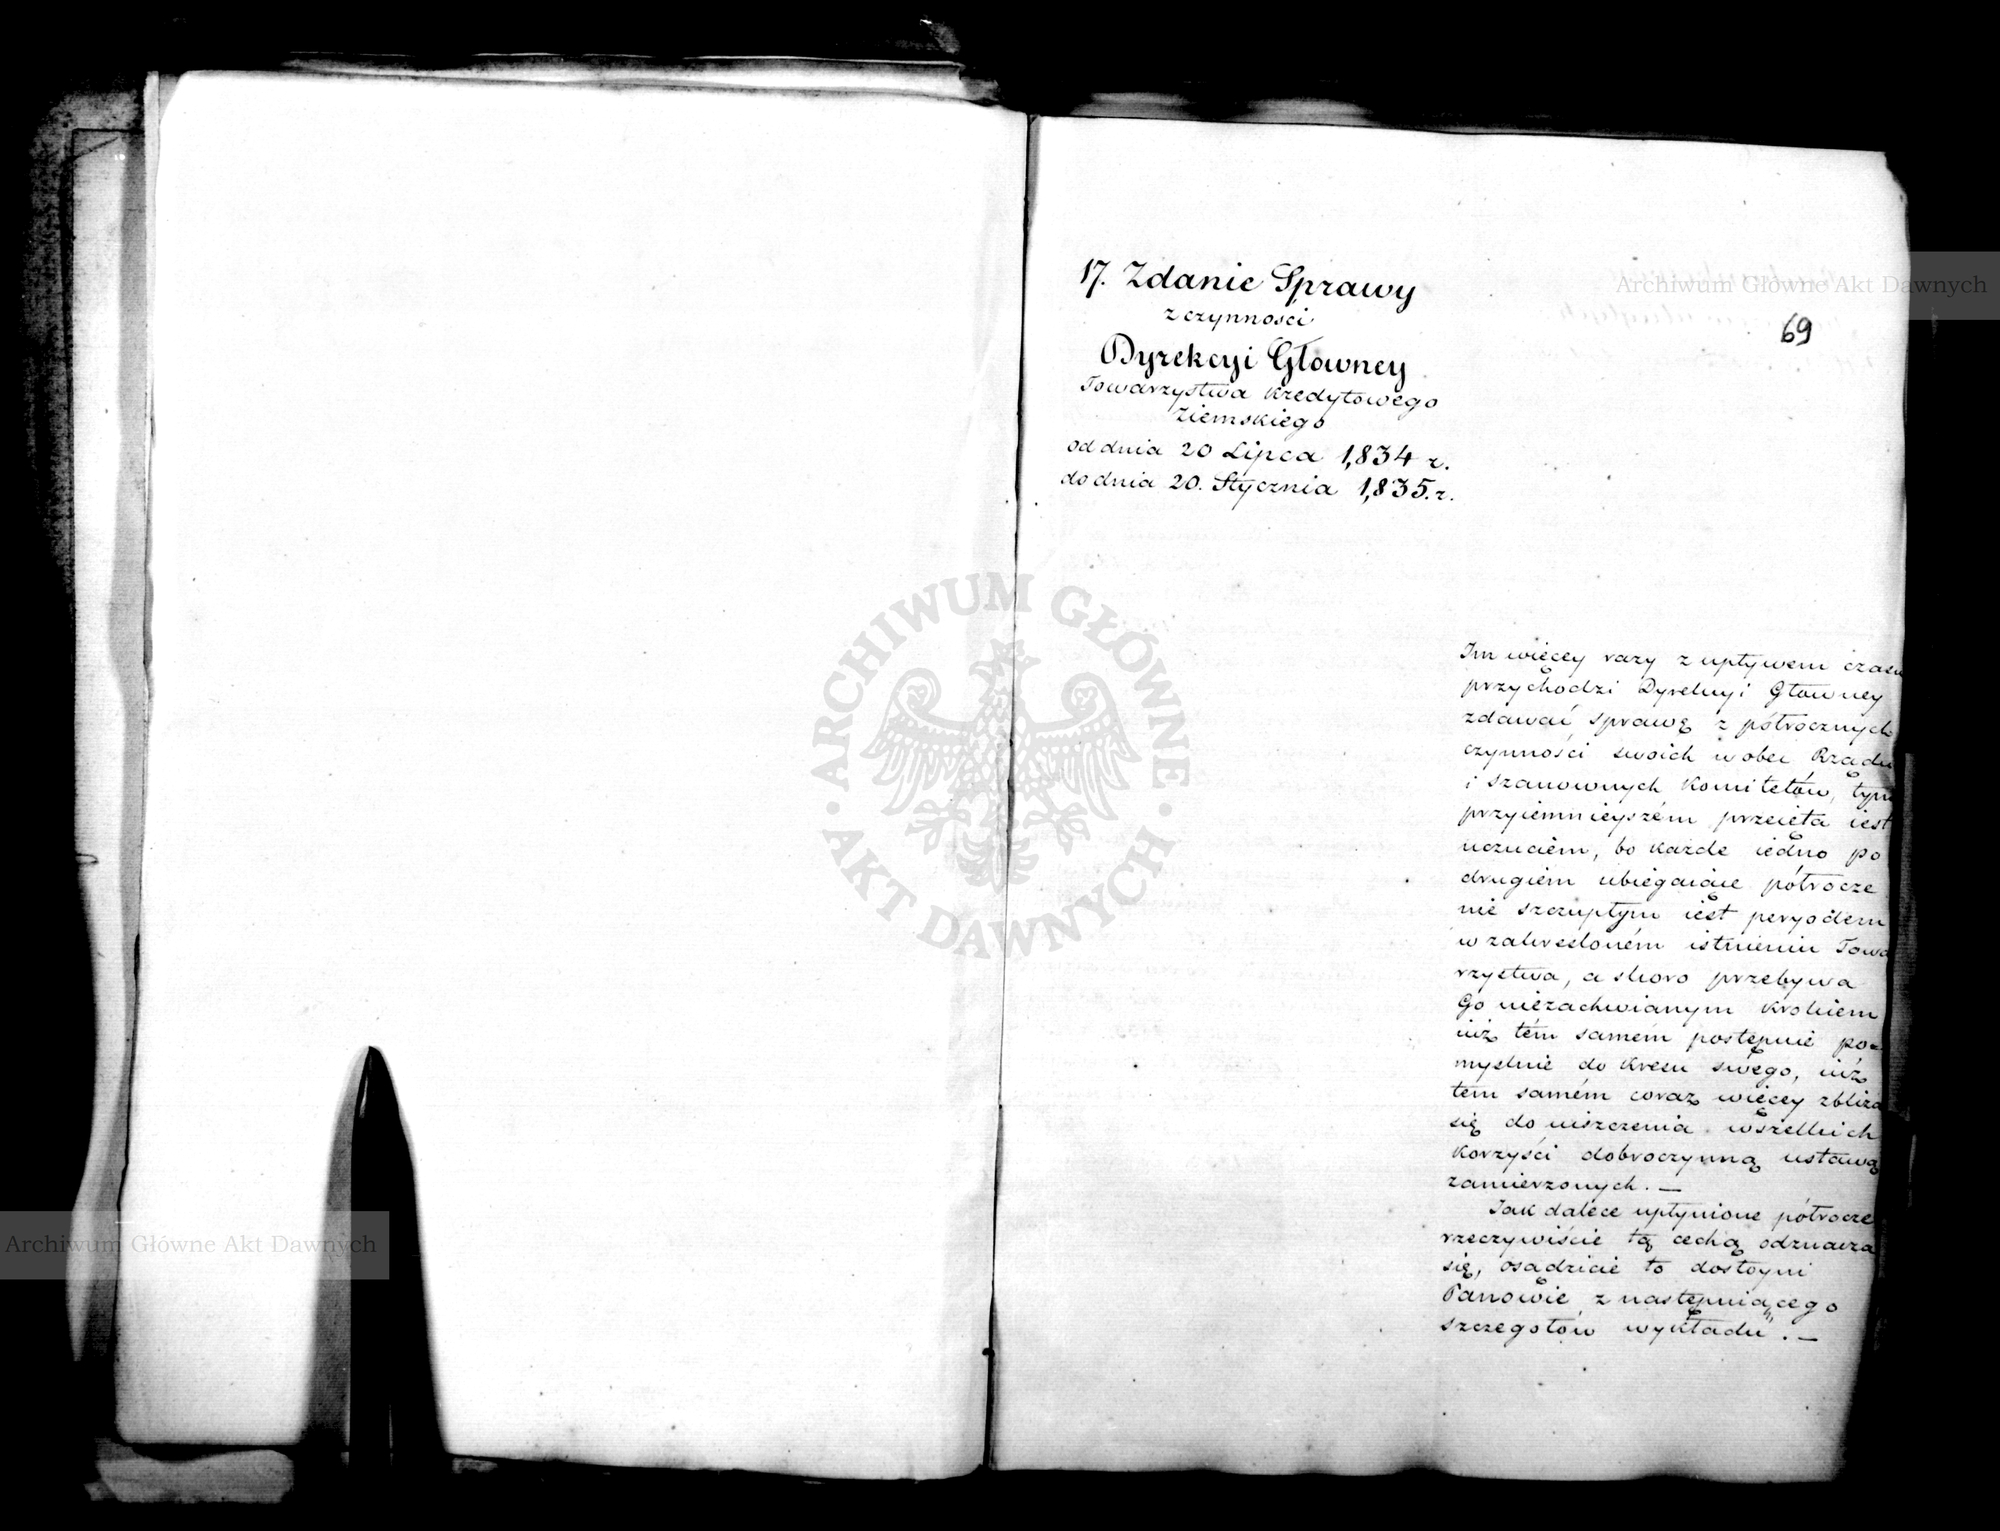 17. Zdanie Sprawy
z czynności
Dyrekcyi Główney
Towarzystwa Kredytowego
Ziemskiego
od dnia 20 Lipca 1,834 r.
do dnia 20. Stycznia 1,835. r.
69
Im więcey razy z upływem czasu
przychodzi Dyrekcyi Główney
zdawać sprawę z półrocznych
czynności swoich wobec Rządu
i szanownych Komitetów, tym
przyiemnieyszém przeięta iest
uczuciem, bo każde iedno po
drugiem ubiegaiące półrocze
nie szczupłym iest peryodem
w zakreśloném istnieniu Towa
rzystwa, a skoro przebywa
Go niezachwianym krokiem
iuż tém samém postępuie po=
myślnie do kresu swego, iuż
tem samém coraz więcey zbliża
się do uiszczenia wszelkich
korzyści dobroczynną ustawą
zamierzonych. —
Jak dalece upłynione półrocze
rzeczywiście tą cechą odznacza
się, osądzicie to dostoyni
Panowie z następuiącego
szczegołów wykładu. —
Archiwum Główne Akt Dawnych
Archiwum Główne Akt Dawnych
ARCHIWUM GŁÓWNE
AKT DAWNYCH